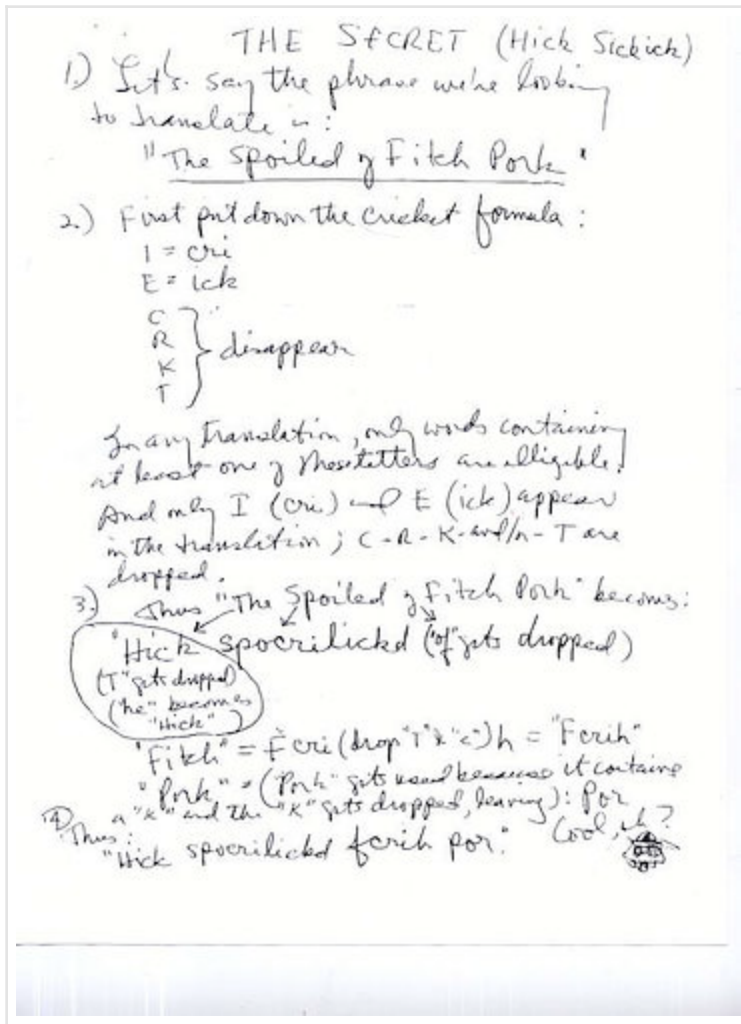 THE SECRET (Hick Sickick)
1.) Let's say the phrase we're looking
to translate is:
"The Spoiled of Fitch Pork"
2.) First put down the cricket formula:
I = cri
E = ick
C
R
K
T
} disappear
In any translation, only words containing
at least one of these letters are elligible.
And only I (cri) and E (ick) appear
in the translation; C-R-K-and/or-T are
dropped.
3.) Thus "The Spoiled of Fitch Pork" becomes:
"Hick spocrilickd ("of" gets dropped)
(T" gets dropped)
("he" becomes
"Hick")
"Fitch" = Fcri (drop "T" & "c") h = "Fcrih"
"Pork" = ("Pork" gets used because it contains
a "K" and the "K" gets dropped, leaving): Por
4.) Thus:
"Hick spocrilickd fcrih por."
Cool, eh?